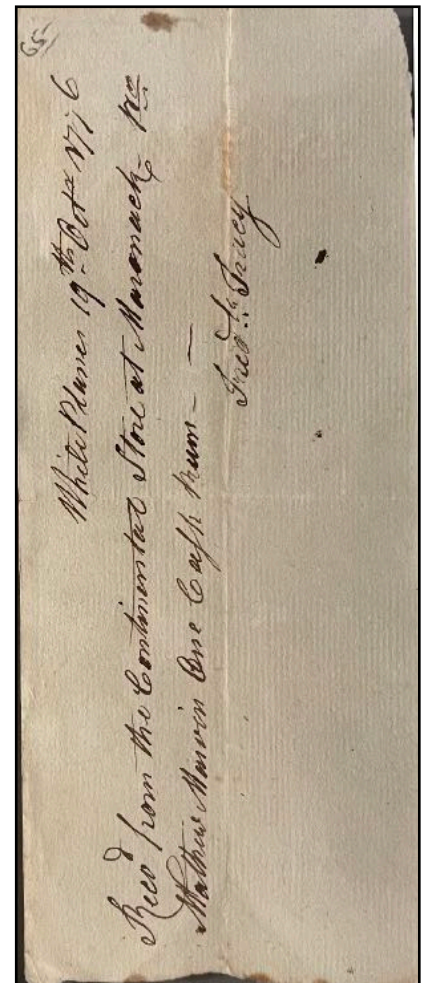 65
White Plains 19th Octr 1776
Recd from the Continental Store at Maroneck pr
Mathew Marvin One Cask Rum
Fredk Tracy